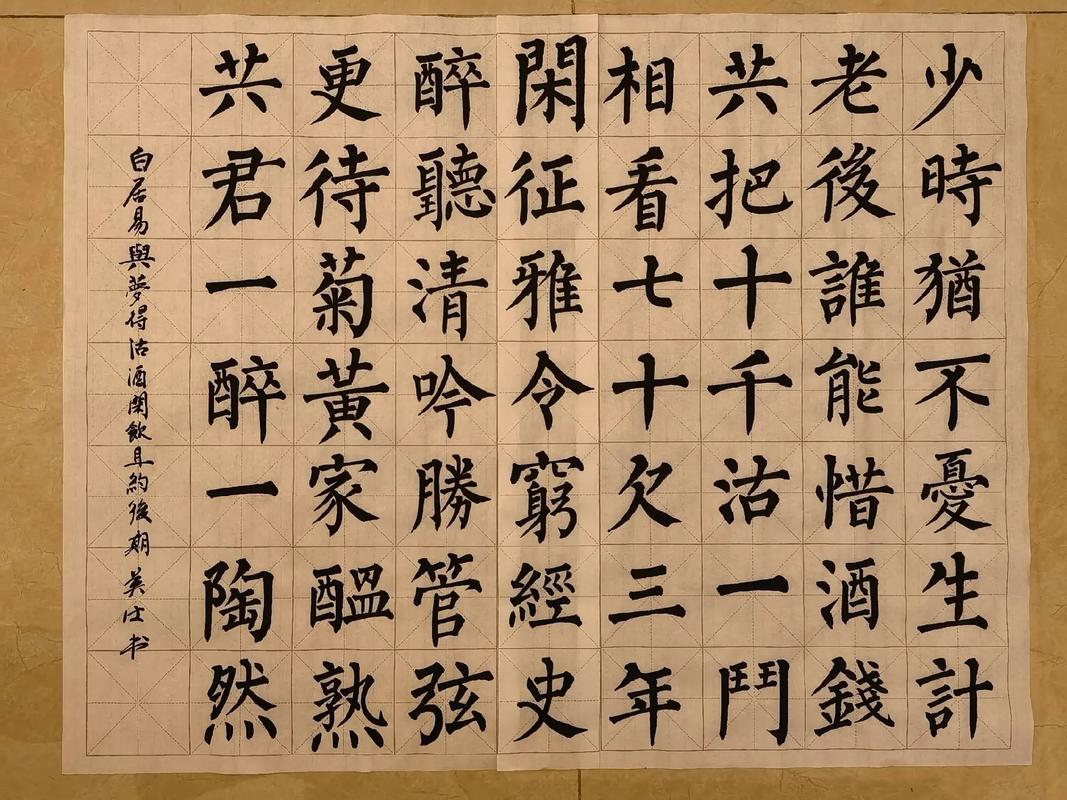 少時猶不憂生計
老後誰能惜酒錢
共把十千沽一鬥
相看七十欠三年
閑征雅令窮經史
醉聽清吟勝管弦
更待菊黃家醞熟
共君一醉一陶然
白居易與夢得沽酒閑飲且約後期 美仕书